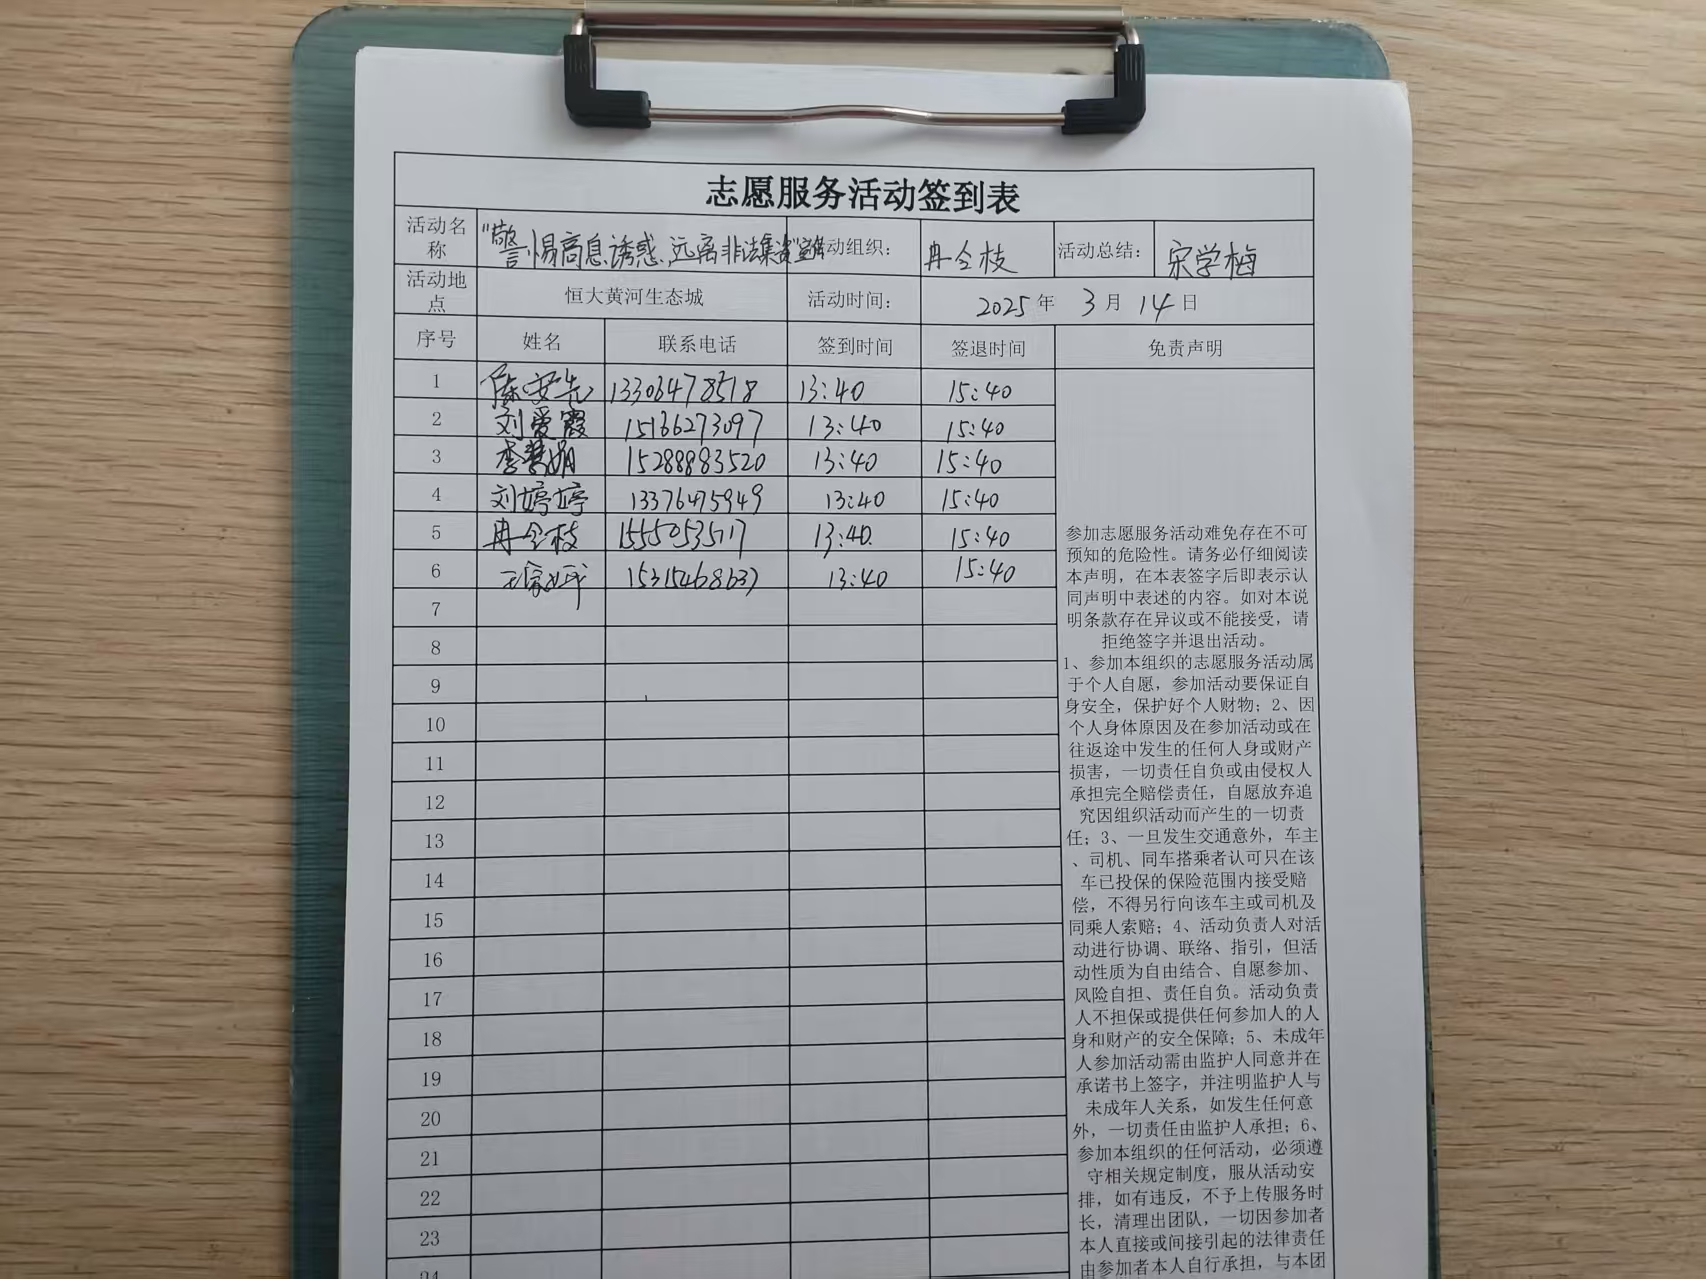 志愿服务活动签到表
活动名称 "警惕高息诱惑,远离非法集资"宣传 活动组织: 冉令枝 活动总结: 宋学梅
活动地点 恒大黄河生态城 活动时间: 2025年 3月 14日
序号 姓名 联系电话 签到时间 签退时间 免责声明
1 陈安先 13303478518 13:40 15:40
2 刘爱霞 15166273097 13:40 15:40
3 李慧娟 15288883520 13:40 15:40
4 刘婷婷 13376475949 13:40 15:40
5 冉令枝 15550535117 13:40. 15:40
6 15315468637 13:40 15:40
7
8
9
10
11
12
13
14
15
16
17
18
19
20
21
22
23
24
参加志愿服务活动难免存在不可
预知的危险性。请务必仔细阅读
本声明,在本表签字后即表示认
同声明中表述的内容。如对本说
明条款存在异议或不能接受,请
拒绝签字并退出活动。
1、参加本组织的志愿服务活动属
于个人自愿,参加活动要保证自
身安全,保护好个人财物;2、因
个人身体原因及在参加活动或在
往返途中发生的任何人身或财产
损害,一切责任自负或由侵权人
承担完全赔偿责任,自愿放弃追
究因组织活动而产生的一切责
任;3、一旦发生交通意外,车主
、司机、同车搭乘者认可只在该
车已投保的保险范围内接受赔
偿,不得另行向该车主或司机及
同乘人索赔;4、活动负责人对活
动进行协调、联络、指引,但活
动性质为自由结合、自愿参加、
风险自担、责任自负。活动负责
人不担保或提供任何参加人的人
身和财产的安全保障;5、未成年
人参加活动需由监护人同意并在
承诺书上签字,并注明监护人与
未成年人关系,如发生任何意
外,一切责任由监护人承担;6、
参加本组织的任何活动,必须遵
守相关规定制度,服从活动安
排,如有违反,不予上传服务时
长,清理出团队,一切因参加者
本人直接或间接引起的法律责任
由参加者本人自行承担,与本团